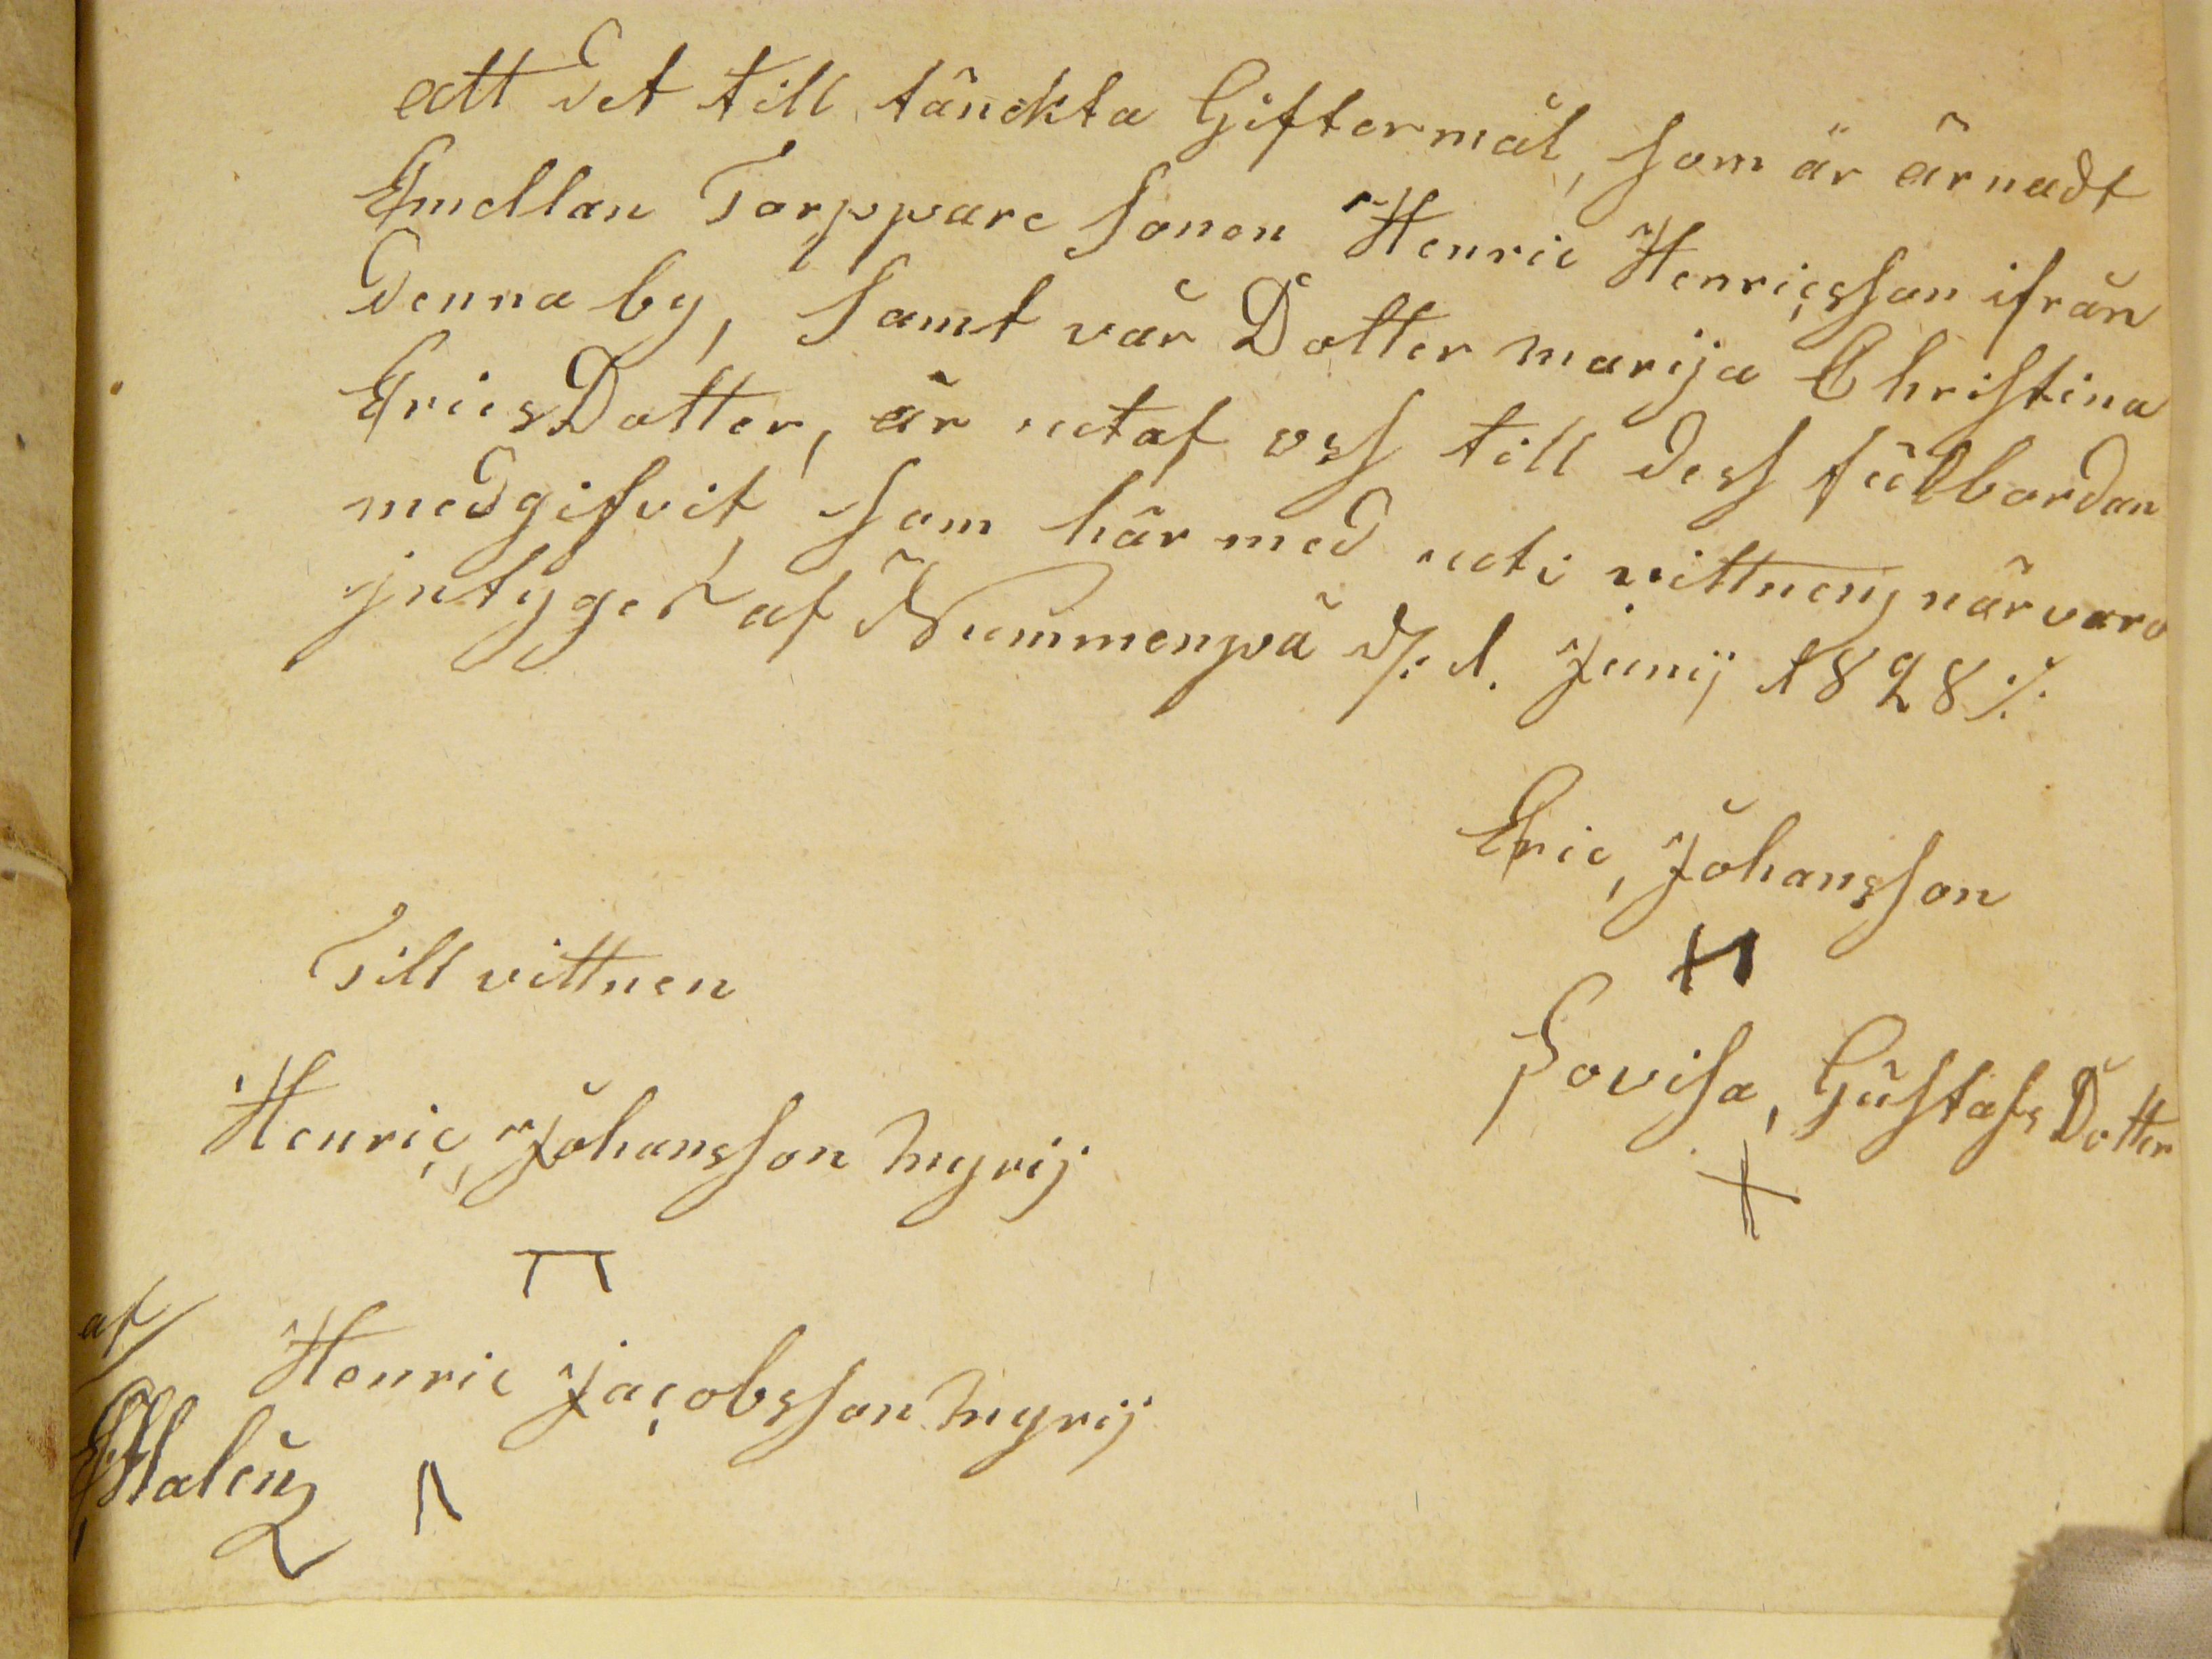 att det till tänckta Giftermål, som är ärnadt
Emellan Torppare Sonen Henric Henricsson ifrån
denna by, Samt vår Dotter marija Christina
EricsDotter, är utaf oss till dess fulbordan
medgifvit, som här med uti vittnens närvaro
jntyges af Nummenpä d/: 1. Junij 1828 ./.
Eric, Johansson
Lovisa, Gustafs Dotter
Till vittnen
Henric, Johansson myrij
Henric Jacobsson myrij
af/